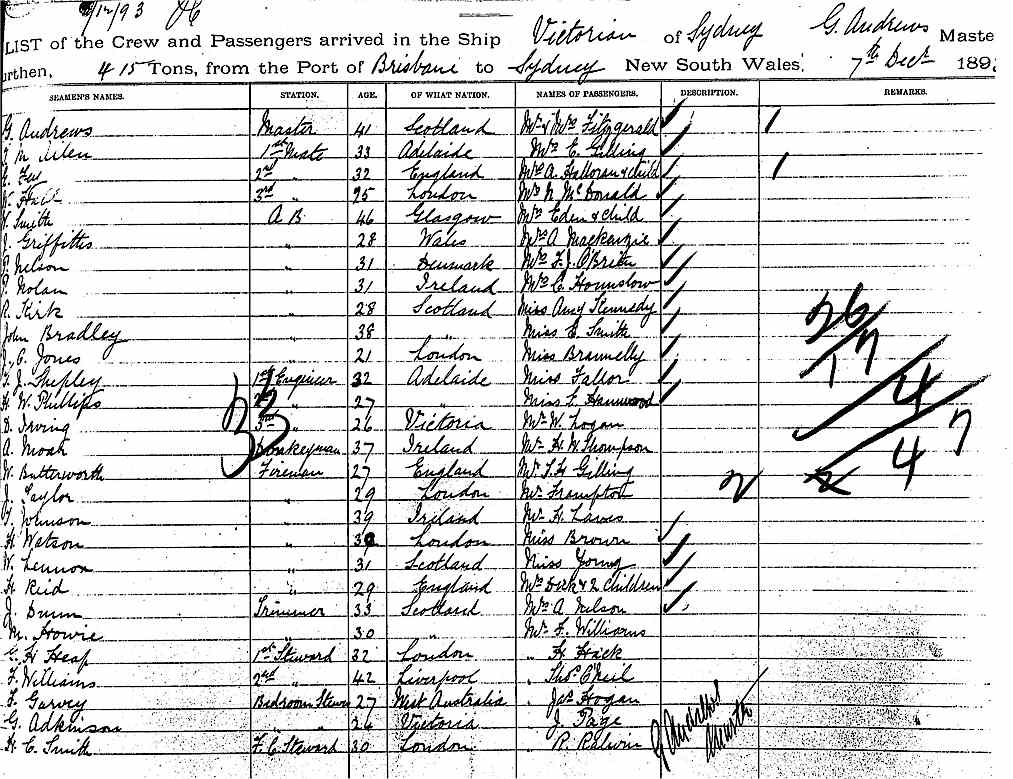 /12/93
LIST of the Crew and Passengers arrived in the Ship Victorian of Sydney G. Andrews Maste
urthen, 415 Tons, from the Port of Brisbane to Sydney New South Wales, 7th Decr 189
SEAMEN'S NAMES. STATION. AGE. OF WHAT NATION. NAMES OF PASSENGERS. DESCRIPTION. REMARKS.
G. Andrews Master 41 Scotland Mr & Mrs Fitzgerald
M. Allen 1st Mate 33 Adelaide Mrs E. Gilling
2nd " 32 England Mrs A. Halloran & child
Hall 3rd " 25 London Mrs N. McDonald
Smith A B 46 Glasgow Mrs Eden & child
J. Griffiths " 28 Wales Mrs A Mackenzie
P. Nelson " 31 Denmark Mrs F. J. O'Brien
P. Nolan " 31 Ireland Mrs C. Hounslow
R. Kirk " 28 Scotland Miss Amy Kennedy
John Bradley " 38 " Miss E. Smith
C. Jones " 21 London Miss Brannelly
J. Shepley 1st Engineer 32 Adelaide Miss Fallor
H. W. Phillips 2nd " 27 " Miss L.
D. Irving 3rd " 26 Victoria Mr W. Logan
A. Moak Donkeyman 37 Ireland Mr H. W. Thompson
W. Butterworth Fireman 27 England Mr T. H Gilling
J. Taylor " 29 London Mr Frampton
Johnson " 39 Ireland Mr H. Laves
H. Watson " London Miss Brown
W. Lennon " 31 Scotland Miss Young
H. Reid " 29 England Mrs Dick & 2 children
J. Dunn Trimmer 33 Scotland Mrs A. Nelson
M. Howie " 30 " Mr F. Williams
H Heap 1st Steward 32 London " H. Hack
F. Williams 2nd " 42 Liverpool " Thos O'Neil
F. Garvey Bedroom Stew 27 West Australia " Jas Hogan
G. Adkinson " 26 Victoria J. Page
H. C. Smith F. C. Steward 30 London " R.
33
26
17
4
7
4
2
G Andrews